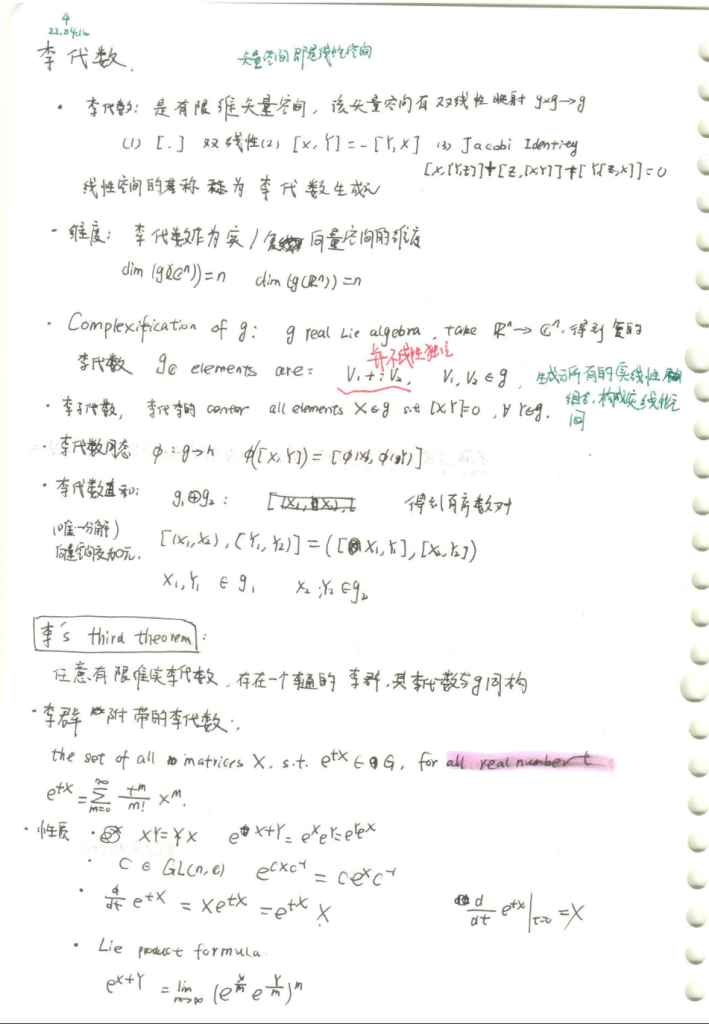 4
22.04.16
李代数.
矢量空间即是线性空间
· 李代数: 是有限维矢量空间, 该矢量空间有双线性映射 g×g→g
(1) [ , ] 双线性 (2) [X,Y]=-[Y,X] (3) Jacobi Identity
[X,[Y,Z]]+[Z,[X,Y]]+[Y,[Z,X]]=0
线性空间的基 称为李代数生成元
· 维度: 李代数作为实/复 向量空间的维度
dim(g(ℂⁿ))=n dim(g(ℝⁿ))=n
· Complexification of g: g real Lie algebra, take ℝⁿ→ℂⁿ. 得到复的
并不线性独立
李代数 g_ℂ elements are: V₁+iV₂, V₁,V₂∈g,
生成元所有的实线性
组合, 构成实线性空
间
· 李子代数, 李代数的 center all elements X∈g s.t [X,Y]=0, ∀Y∈g.
· 李代数同态 φ:g→h φ([X,Y])=[φ(X),φ(Y)]
· 李代数直和: g₁⊕g₂: 得到有序数对
(唯一分解)
[(X₁,X₂),(Y₁,Y₂)]=([X₁,Y₁],[X₂,Y₂])
X₁,Y₁ ∈ g₁ X₂,Y₂∈g₂
李's third theorem:
任意有限维实李代数, 存在一个连通的李群, 其李代数与g同构
· 李群附带的李代数:
the set of all matrices X, s.t. e^{tX}∈G, for all real number t
e^{tX}=∑_{m=0}^{∞} \frac{t^m}{m!} X^m.
· 性质 · XY=YX e^{X+Y}=e^Xe^Y=e^Ye^X
· C ∈ GL(n,ℂ) e^{CXC⁻¹}=Ce^XC⁻¹
· \frac{d}{dt} e^{tX} = Xe^{tX} = e^{tX}X \frac{d}{dt} e^{tX}|_{t=0}=X
· Lie product formula.
e^{X+Y} = lim_{m→∞} (e^{\frac{X}{m}} e^{\frac{Y}{m}})^m